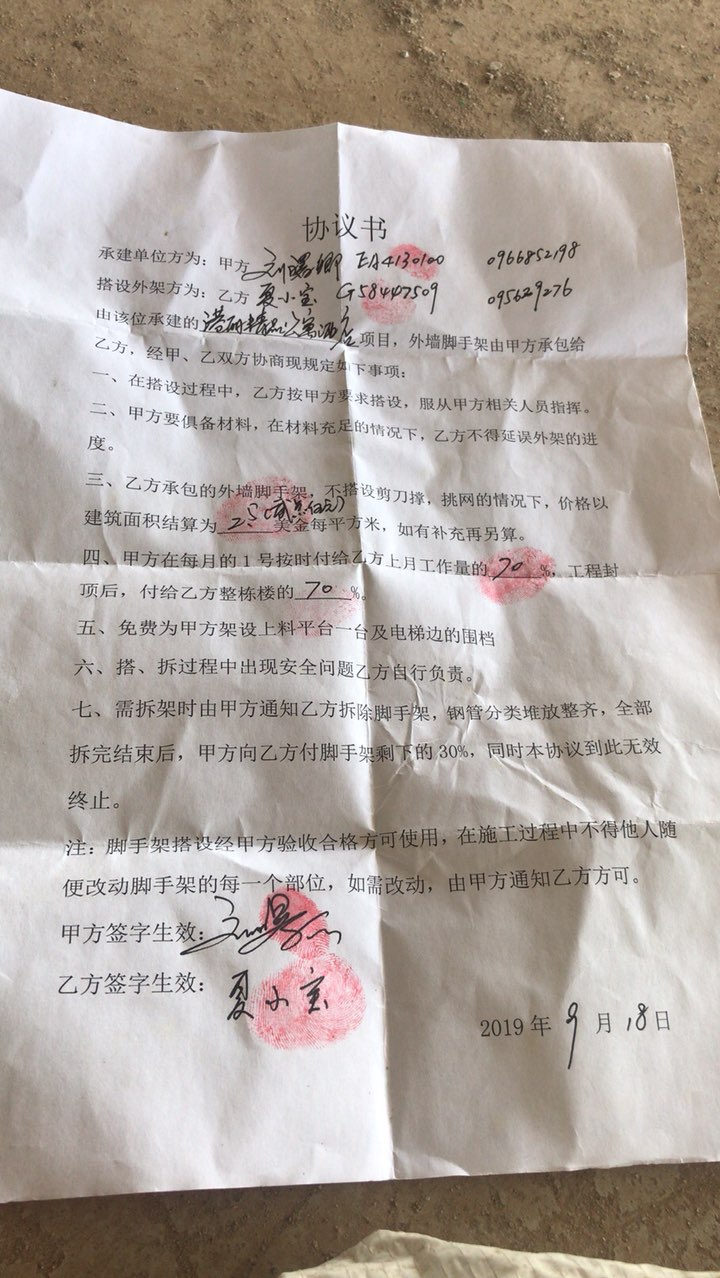 协议书
承建单位方为：甲方 刘曙卿 EA4130100 0966852198
搭设外架方为：乙方 夏小宝 G58447509 095629276
由该位承建的 精品 酒店 项目，外墙脚手架由甲方承包给
乙方，经甲、乙双方协商现规定如下事项：
一、在搭设过程中，乙方按甲方要求搭设，服从甲方相关人员指挥。
二、甲方要俱备材料，在材料充足的情况下，乙方不得延误外架的进
度。
三、乙方承包的外墙脚手架，不搭设剪刀撑，挑网的情况下，价格以
建筑面积结算为 美金每平方米，如有补充再另算。
四、甲方在每月的1号按时付给乙方上月工作量的 70 %，工程封
顶后，付给乙方整栋楼的 70 %。
五、免费为甲方架设上料平台一台及电梯边的围档
六、搭、拆过程中出现安全问题乙方自行负责。
七、需拆架时由甲方通知乙方拆除脚手架，钢管分类堆放整齐，全部
拆完结束后，甲方向乙方付脚手架剩下的30%，同时本协议到此无效
终止。
注：脚手架搭设经甲方验收合格方可使用，在施工过程中不得他人随
便改动脚手架的每一个部位，如需改动，由甲方通知乙方方可。
甲方签字生效：
乙方签字生效：夏小宝
2019年 9 月 18日